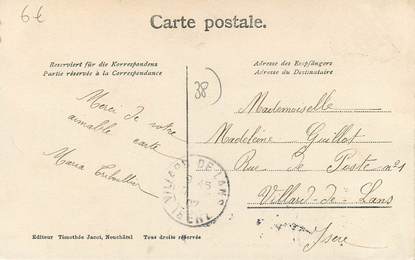 6€
Carte postale.
Reserviert für die Korrespondenz
Partie réservée à la Correspondance
Adresse des Empfängers
Adresse du Destinataire
38
Merci de votre
aimable carte
Maria
Mademoiselle
Madeleine Guillot
Rue de Poste n°1
Villard-de-Lans
Isère
VILLARD-DE-LANS
ISÈRE
Editeur Timothée Jacot, Neuchâtel Tous droits réservés